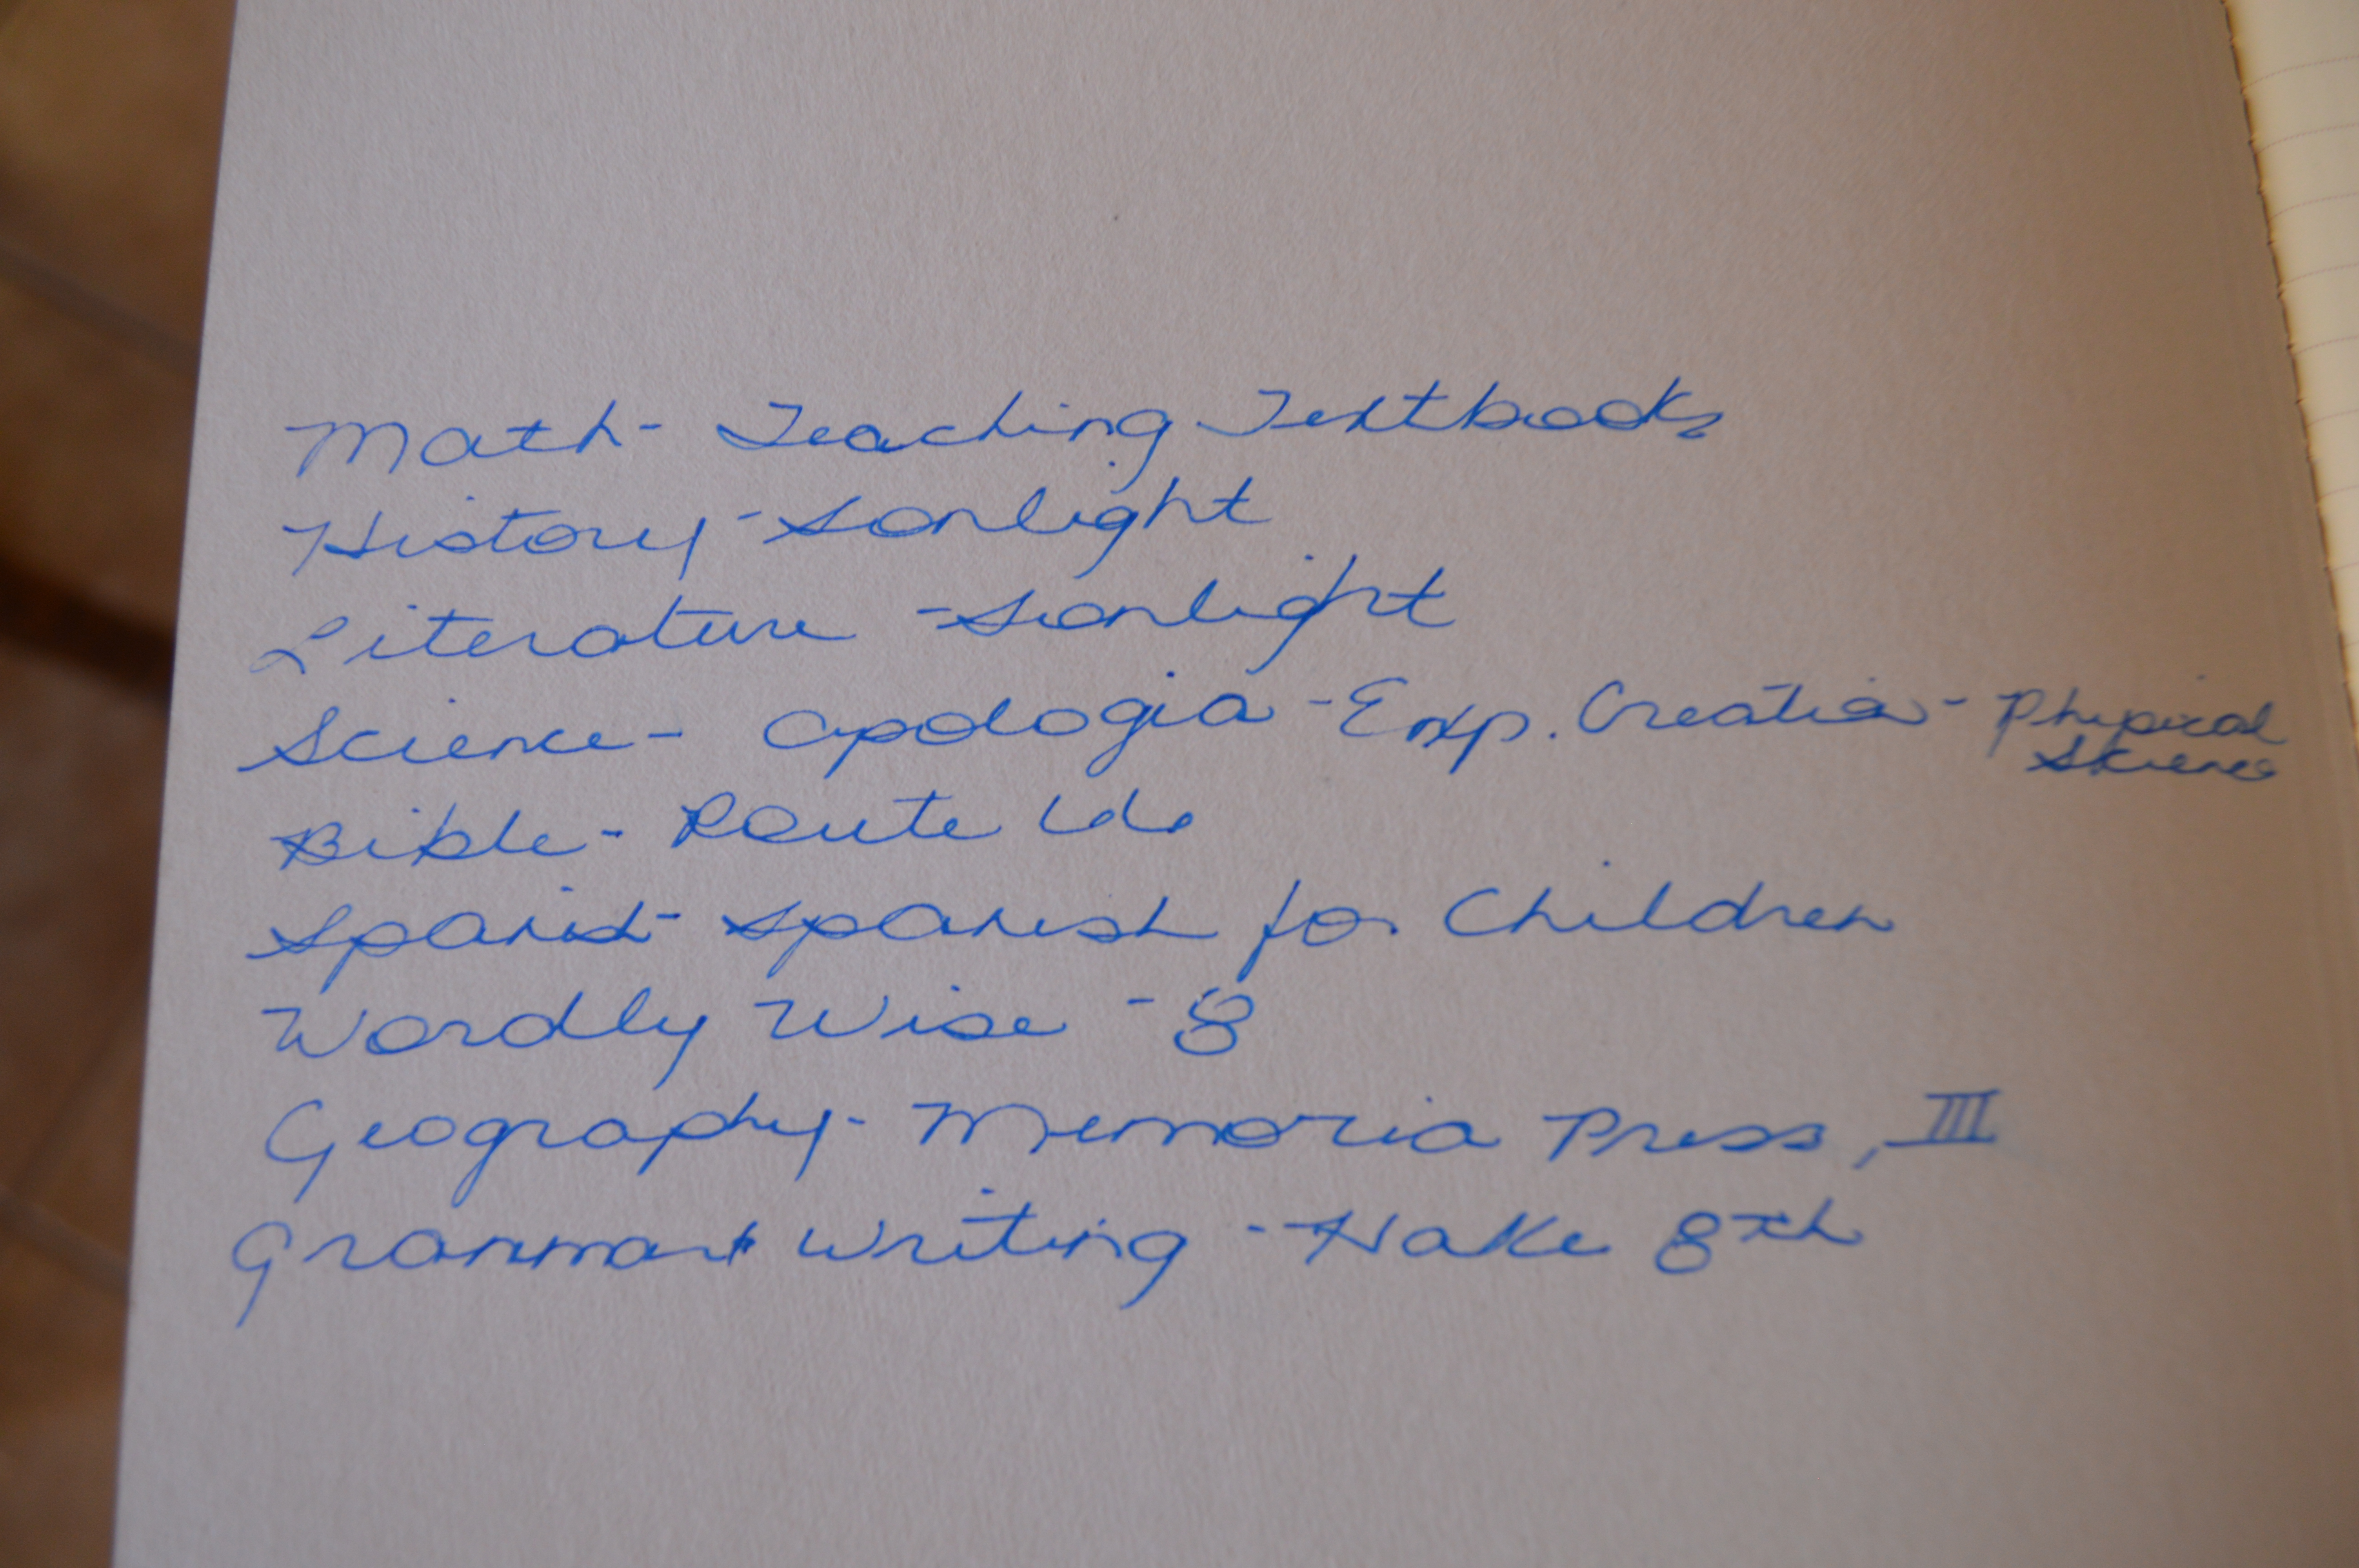 Math- Teaching Textbooks
History- Sonlight
Literature - Sonlight
Science- Apologia - Exp. Creation - Physical Science
Bible- Route 66
Spanish- Spanish for Children
Wordly Wise - 8
Geography- Memoria Press, III
Grammar + Writing - Hake 8th